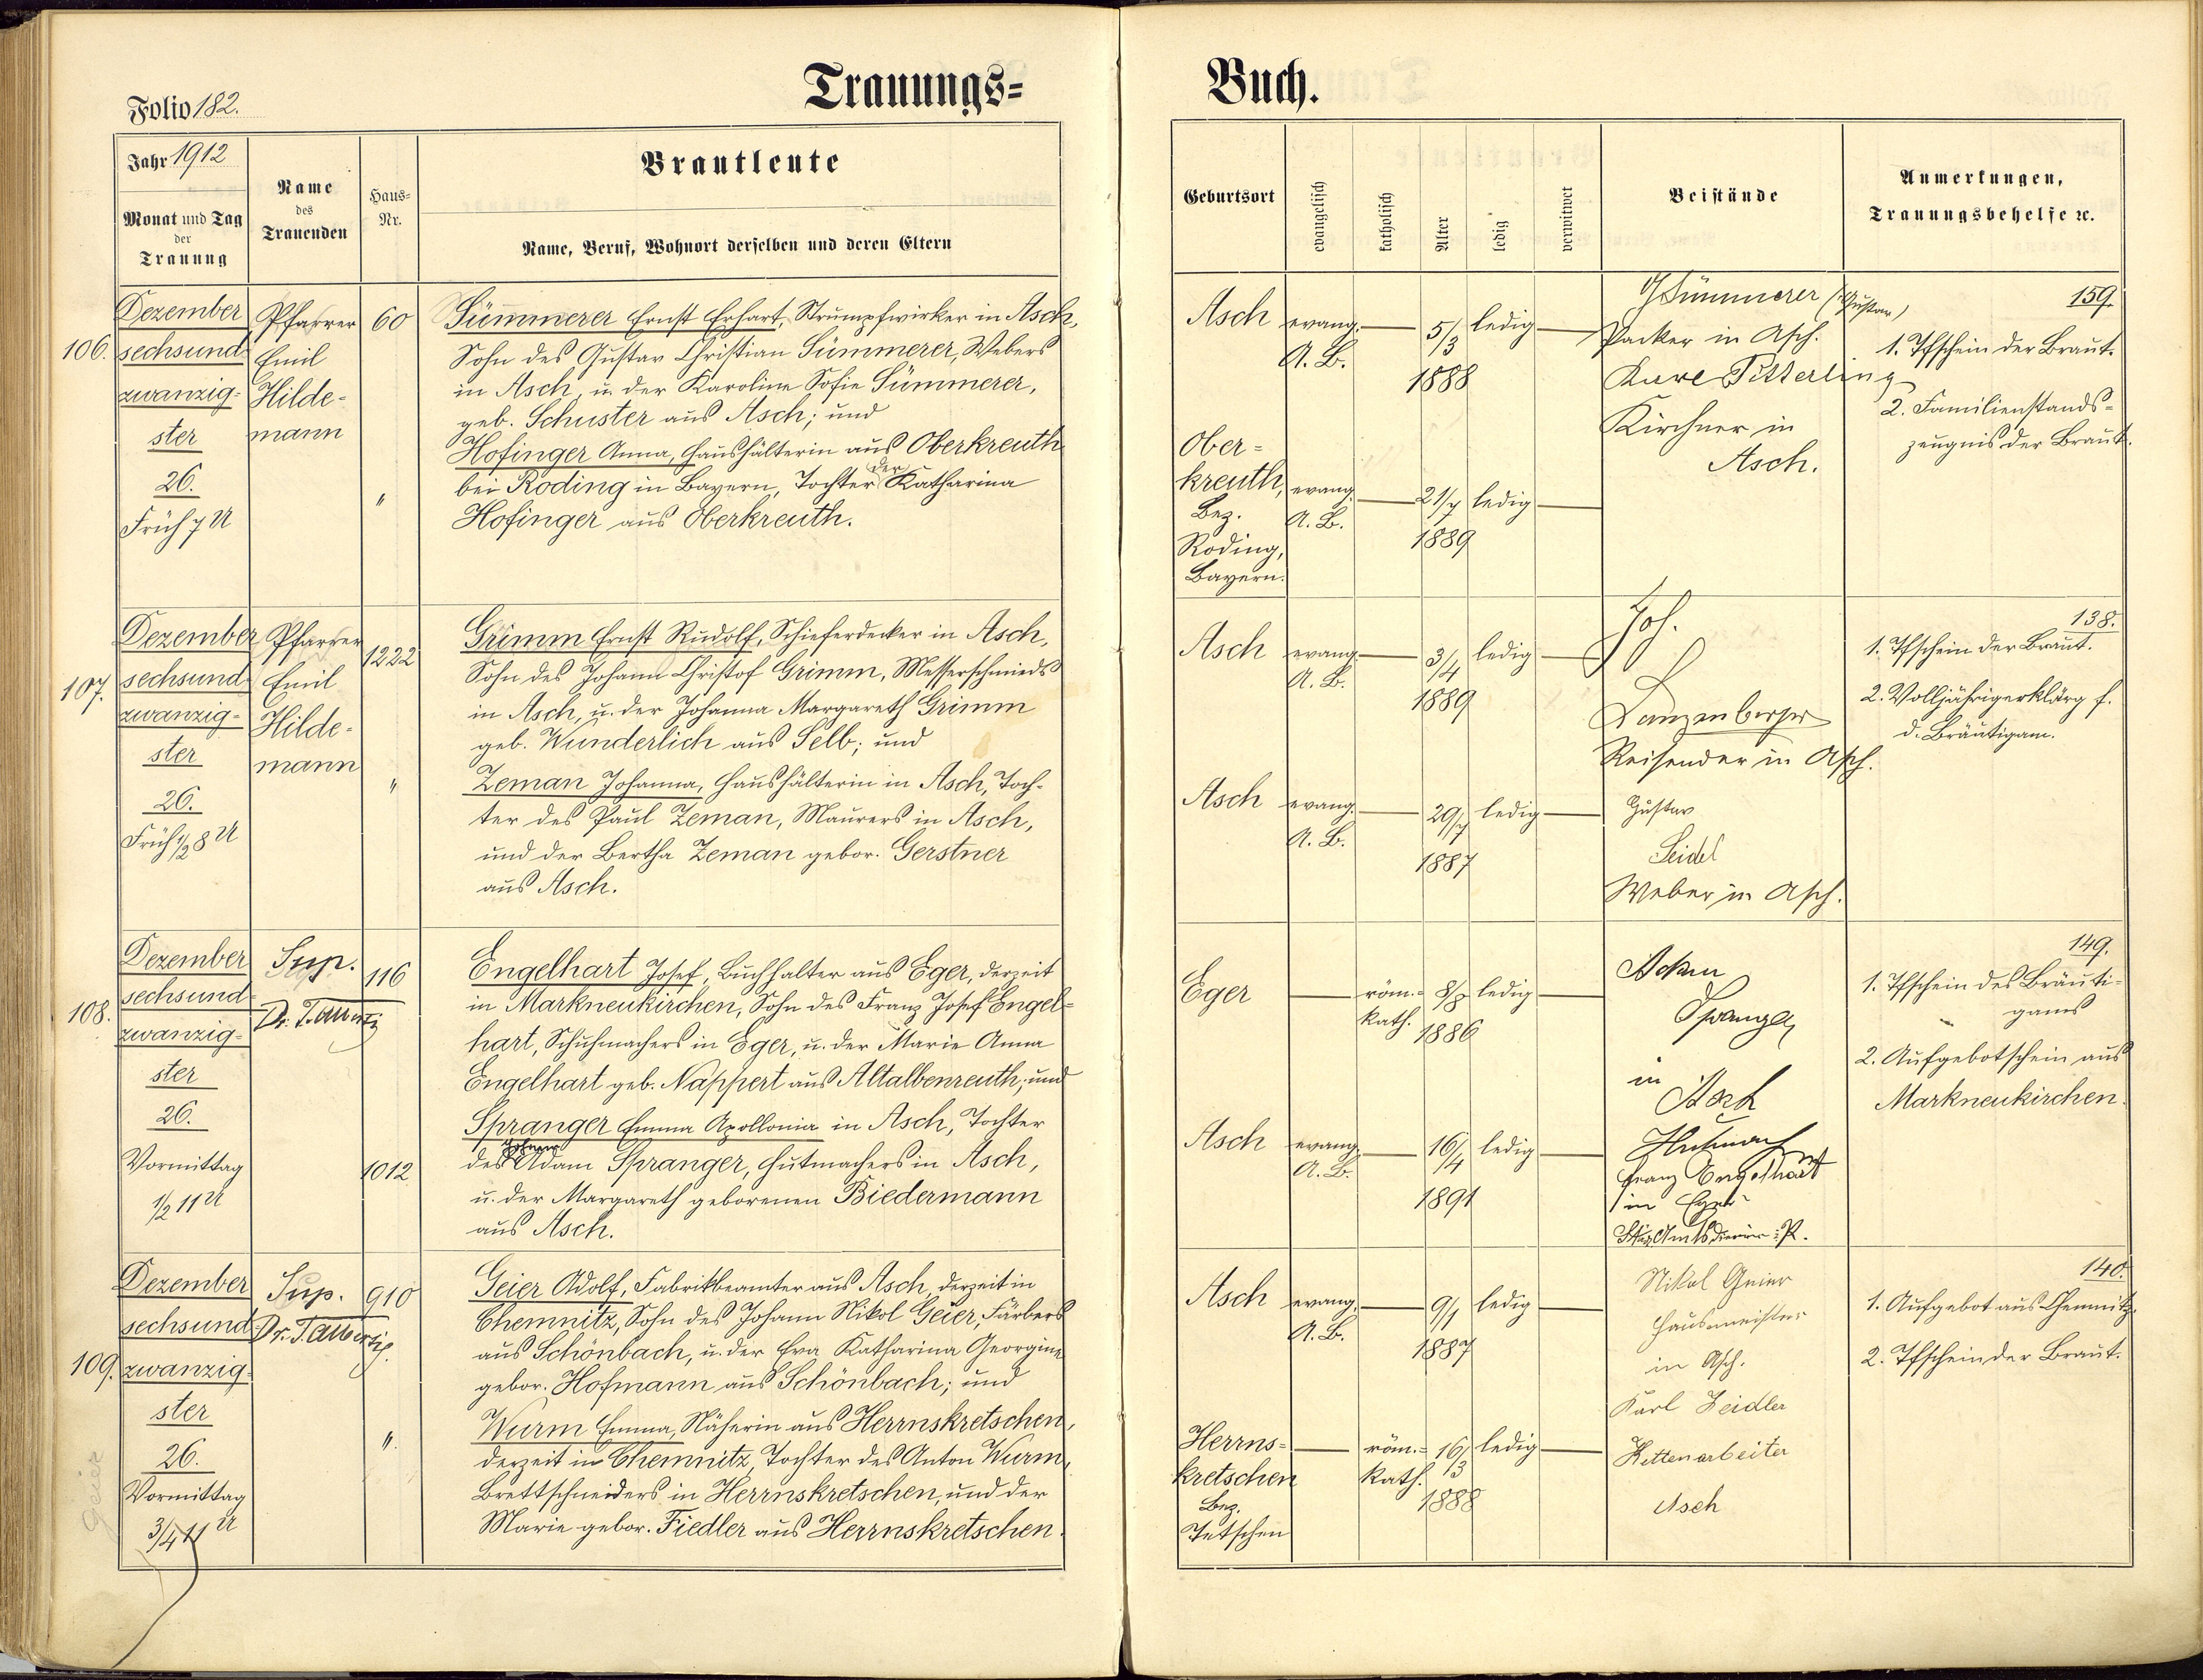 Folio 182.
Trauungs=
Buch.
Jahr 1912
Monat und Tag
der
Trauung
Name
des
Trauenden
Haus=
Nr.
Brautleute
Name, Beruf, Wohnort derselben und deren Eltern
Geburtsort
evangelisch
katholisch
Alter
ledig
verwitwet
Beistände
Anmerkungen,
Trauungsbehelfe ꝛc.
106.
Dezember
sechsund=
zwanzig=
ster
26.
Früh 7 U
Pfarrer
Emil
Hilde=
mann
60
"
Sümmerer Ernst Erhart, Strumpfwirker in Asch,
Sohn des Gustav Christian Sümmerer, Webers
in Asch, u. der Karoline Sofie Sümmerer,
geb. Schuster aus Asch; und
Hofinger Anna, Haushälterin aus Oberkreuth
bei Roding in Bayern, Tochter der Katharina
Hofinger aus Oberkreuth.
Asch
evang.
A. B.
5/3
1888
ledig
Ober=
kreuth,
Bez.
Roding,
Bayern.
evang.
A. B.
21/7
1889
ledig
Sümmerer (Gustav)
Packer in Asch.
Karl Pitterling
Kirchner in
Asch.
159.
1. Tfschein der Braut.
2. Familienstands=
zeugnis der Braut.
107.
Dezember
sechsund=
zwanzig=
ster
26.
Früh 1/2 8 U
Pfarrer
Emil
Hilde=
mann
1222
"
Grimm Ernst Rudolf, Schieferdecker in Asch,
Sohn des Johann Christof Grimm, Messerschmieds
in Asch, u. der Johanna Margareth Grimm
geb. Wunderlich aus Selb; und
Zeman Johanna, Haushälterin in Asch, Toch=
ter des Paul Zeman, Maurers in Asch,
und der Bertha Zeman gebor. Gerstner
aus Asch.
Asch
evang.
A. B.
3/4
1889
ledig
Asch
evang.
A. B.
29/7
1887
ledig
Joh.
Lanzenberger
Reisender in Asch.
Gustav
Seidel
Weber in Asch.
138.
1. Tfschein der Braut.
2. Volljährigerklärg f.
d. Bräutigam.
108.
Dezember
sechsund=
zwanzig=
ster
26.
Vormittag
1/2 11 U
Sup.
Dr. T. Alberti
116
1012
Engelhart Josef, Buchhalter aus Eger, derzeit
in Markneukirchen, Sohn des Franz Josef Engel=
hart, Schuhmachers in Eger, u. der Marie Anna
Engelhart geb. Nappert aus Altalbenreuth; und
Spranger Emma Apollonia in Asch, Tochter
Johann
des Adam Spranger, Hutmachers in Asch,
u. der Margareth geborenen Biedermann
aus Asch.
Eger
röm.=
kath.
8/8
1886
ledig
Asch
evang.
A. B.
16/4
1891
ledig
Adam
Spranger
in
Asch
Hutmacher
Franz Engelhart
in Eger
149.
1. Tfschein des Bräuti=
gams
2. Aufgebotschein aus
Markneukirchen.
109.
Dezember
sechsund=
zwanzig=
ster
26.
Vormittag
3/4 11 U
Geier
Sup.
Dr. T. Alberti
910
"
Geier Adolf, Fabrikbeamter aus Asch, derzeit in
Chemnitz, Sohn des Johann Nikol Geier, Färbers
aus Schönbach, u. der Eva Katharina Georgine
gebor. Hofmann aus Schönbach; und
Wurm Emma, Näherin aus Herrnskretschen,
derzeit in Chemnitz, Tochter des Anton Wurm,
Brettschneiders in Herrnskretschen, und der
Marie gebor. Fiedler aus Herrnskretschen.
Asch
evang.
A. B.
9/1
1887
ledig
Herrns=
kretschen
Bez.
Tetschen
röm.=
kath.
16/3
1888
ledig
Nikol Geier
Hausmeister
in Asch.
Karl Zeidler
Kettenarbeiter
Asch
140.
1. Aufgebot aus Chemnitz.
2. Tfschein der Braut.